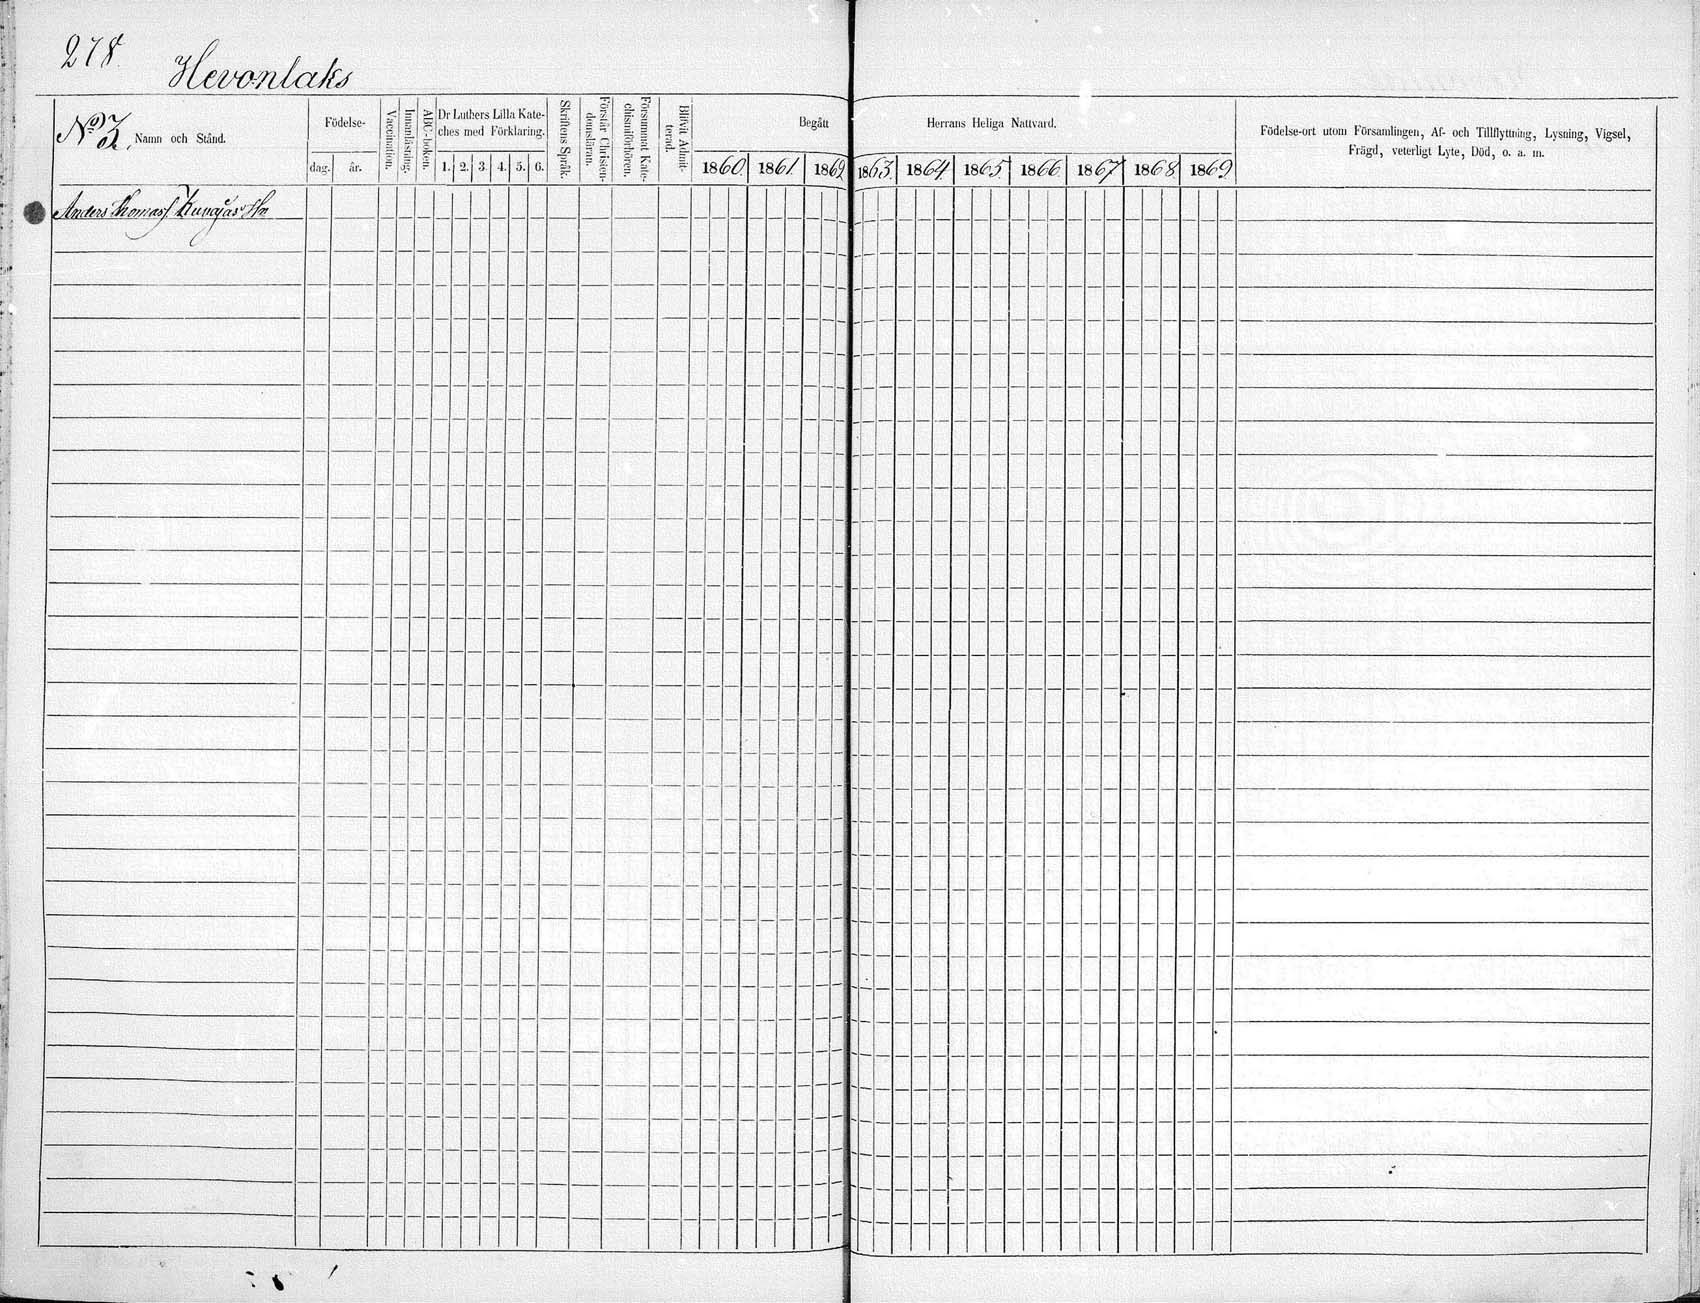 278.
Hevonlaks
No 3. Namn och Stånd.
Födelse-
dag. år.
Vaccination.
Innanläsning.
ABC-boken.
Dr Luthers Lilla Kate-
ches med Förklaring.
1. 2. 3. 4. 5. 6.
Skriftens Språk.
Förstår Christen-
domsläran.
Försummat Kate-
chismiförhören.
Blifvit Admit-
terad.
Begått Herrans Heliga Nattvard.
1860 1861 1862 1863 1864 1865 1866 1867 1868 1869
Födelse-ort utom Församlingen, Af- och Tillflyttning, Lysning, Vigsel,
Frägd, veterligt Lyte, Död, o. a. m.
Anders Thomass